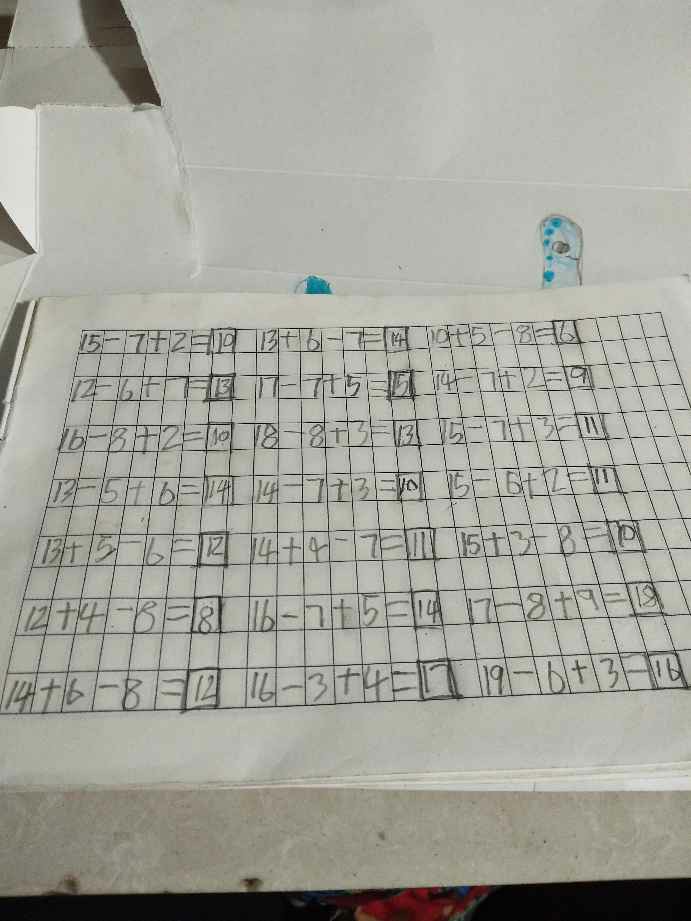 15-7+2=10 13+6-7=14 10+5-8=6
12-6+7=13 17-7+5=15 14-7+2=9
16-8+2=10 18-8+3=13 15-7+3=11
13-5+6=14 14-7+3=10 15-6+2=11
13+5-6=12 14+4-7=11 15+3-8=10
12+4-8=8 16-7+5=14 17-8+9=18
14+6-8=12 16-3+4=17 19-6+3=16